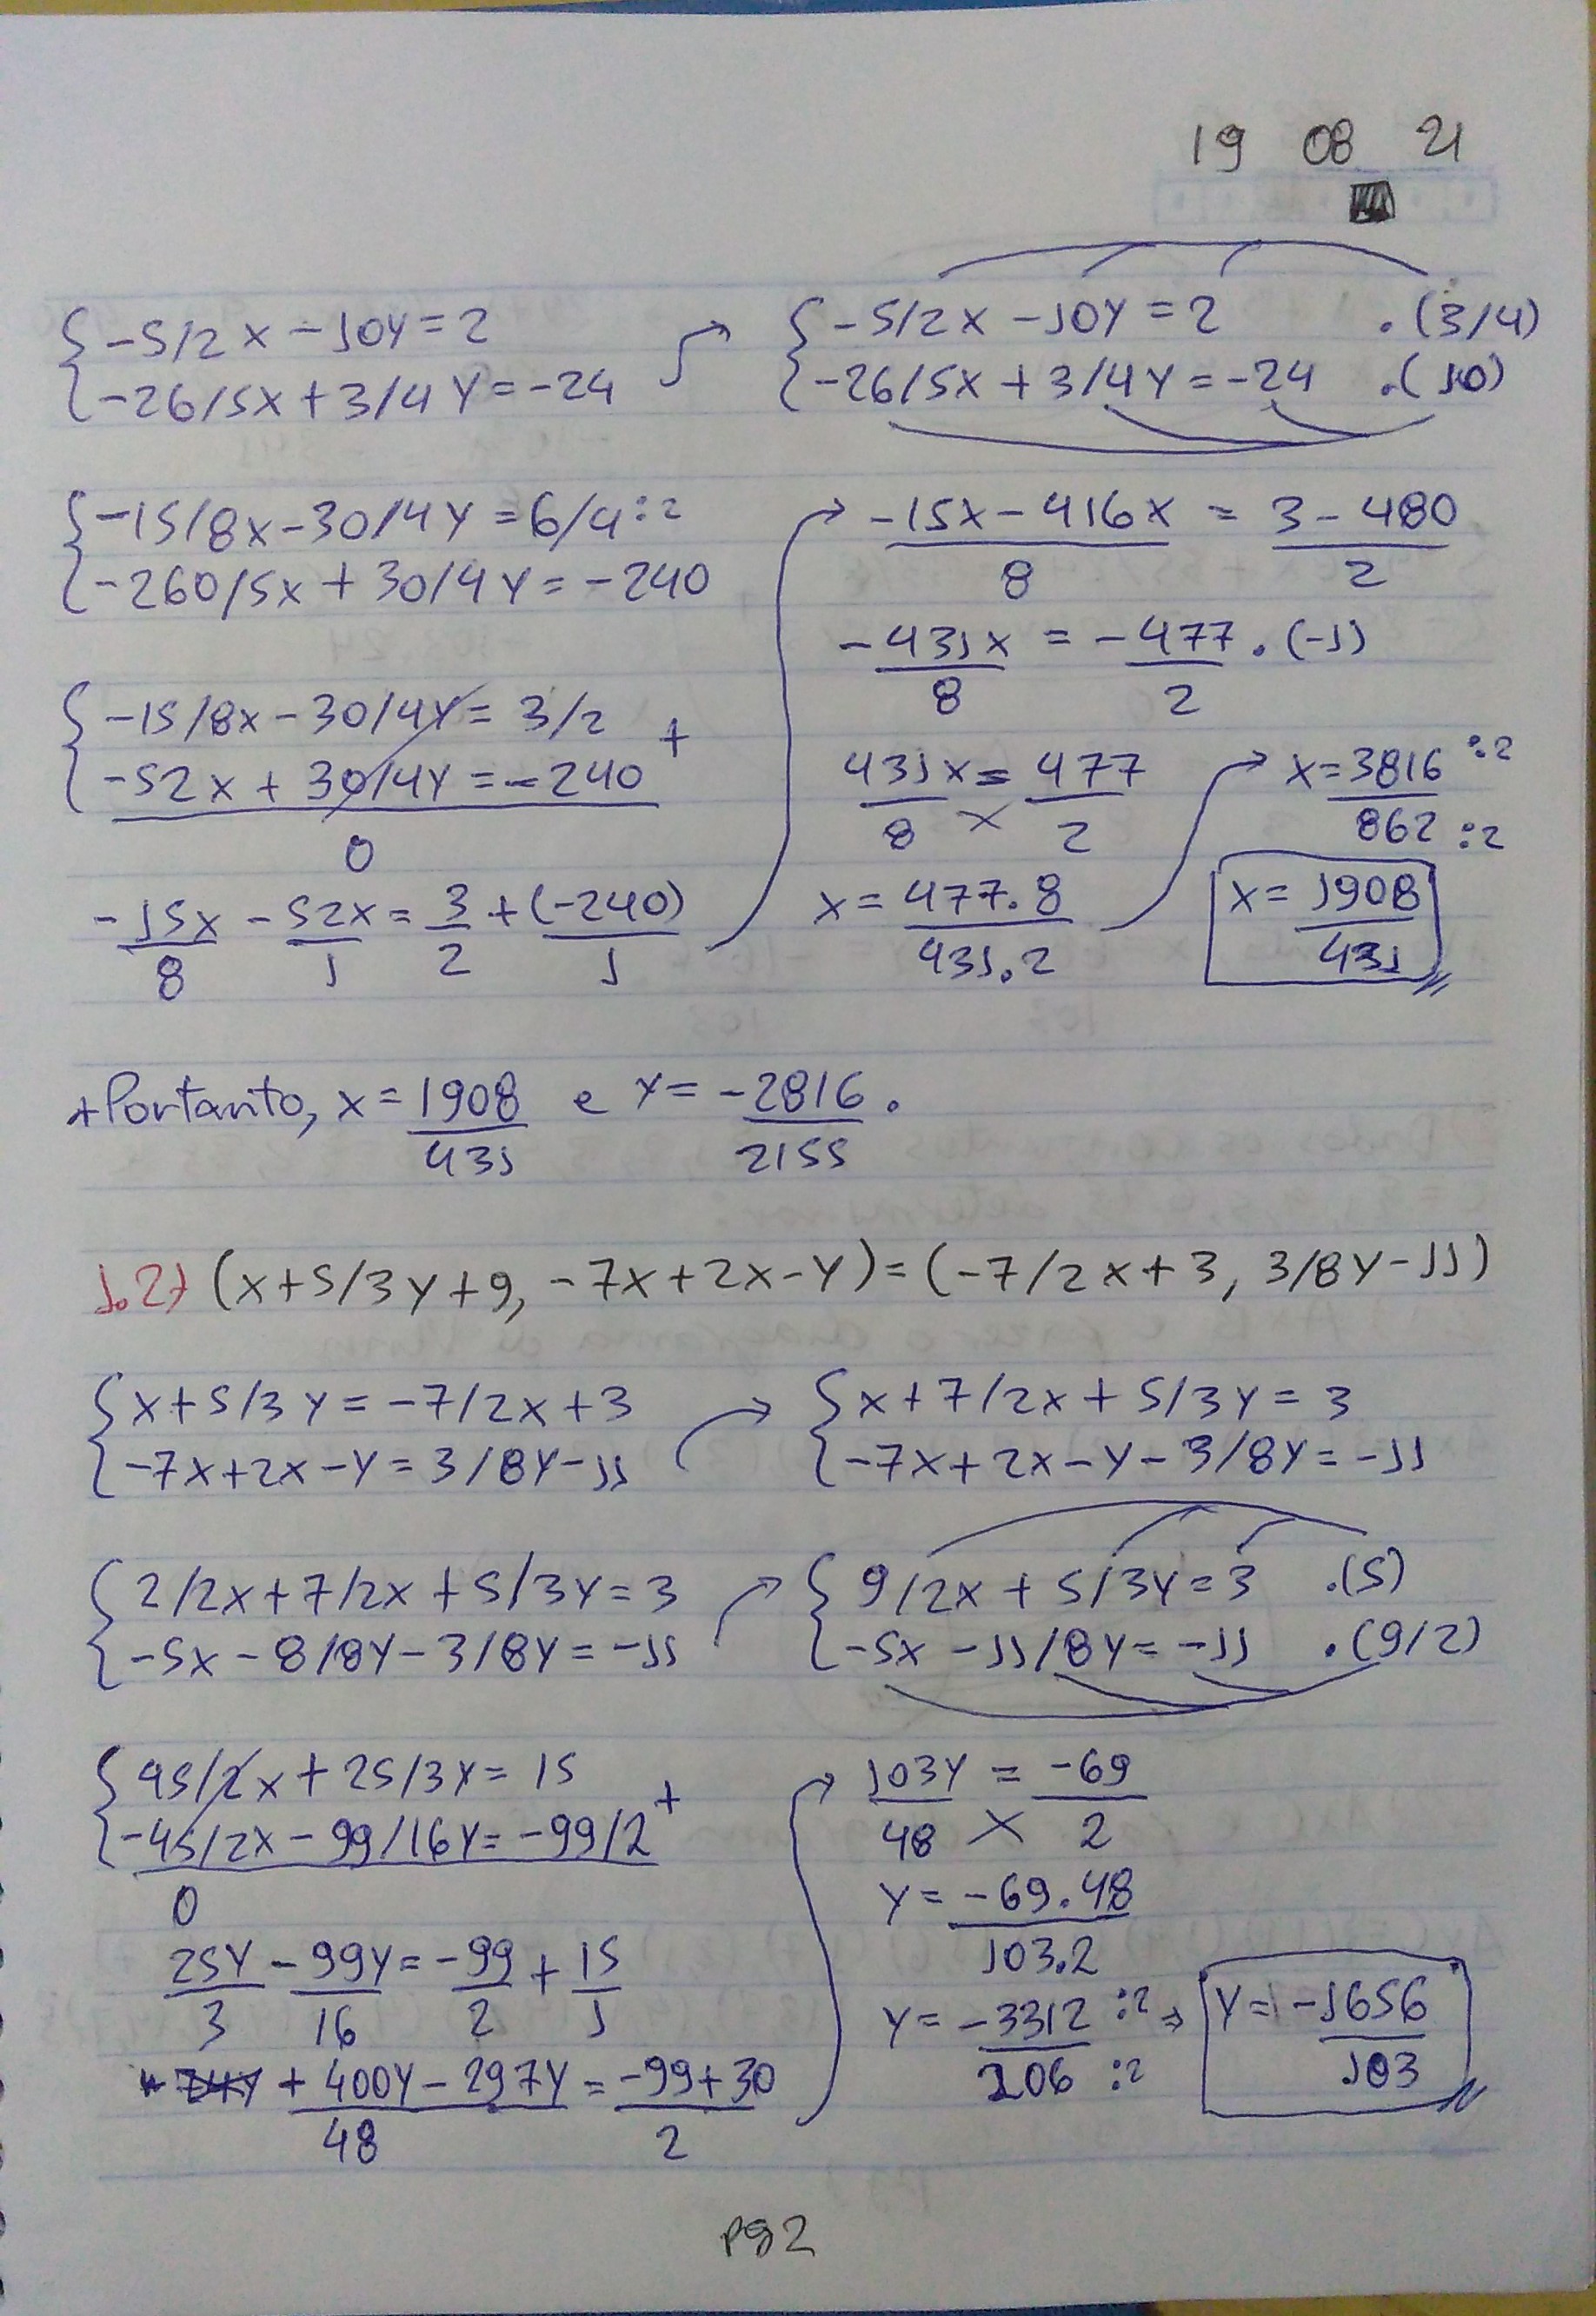 19 08 21
{-5/2x-10y=2
{-26/5x+3/4y=-24
{-5/2x-10y=2 .(3/4)
{-26/5x+3/4y=-24 .(10)
{-15/8x-30/4y=6/4:2
{-260/5x+30/4y=-240
{-15/8x-30/4y=3/2 +
{-52x+30/4y=-240
0
-15x/8 - 52x/1 = 3/2 + (-240)/1
-15x-416x/8 = 3-480/2
-431x/8 = -477/2 .(-1)
431x/8 = 477/2
x = 477.8/431.2
x = 3816:2/862:2
x = 1908/431
*Portanto, x = 1908/431 e y = -2816/2155.
1.2) (x+5/3y+9, -7x+2x-y)=(-7/2x+3, 3/8y-11)
{x+5/3y=-7/2x+3
{-7x+2x-y=3/8y-11
{x+7/2x+5/3y=3
{-7x+2x-y-3/8y=-11
{2/2x+7/2x+5/3y=3
{-5x-8/8y-3/8y=-11
{9/2x+5/3y=3 .(5)
{-5x-11/8y=-11 .(9/2)
{45/2x+25/3y=15 +
{-45/2x-99/16y=-99/2
0
25y/3 - 99y/16 = -99/2 + 15/1
+400y-297y/48 = -99+30/2
103y/48 = -69/2
y = -69.48/103.2
y = -3312:2/206:2 ⇒ y = -1656/103
pg 2